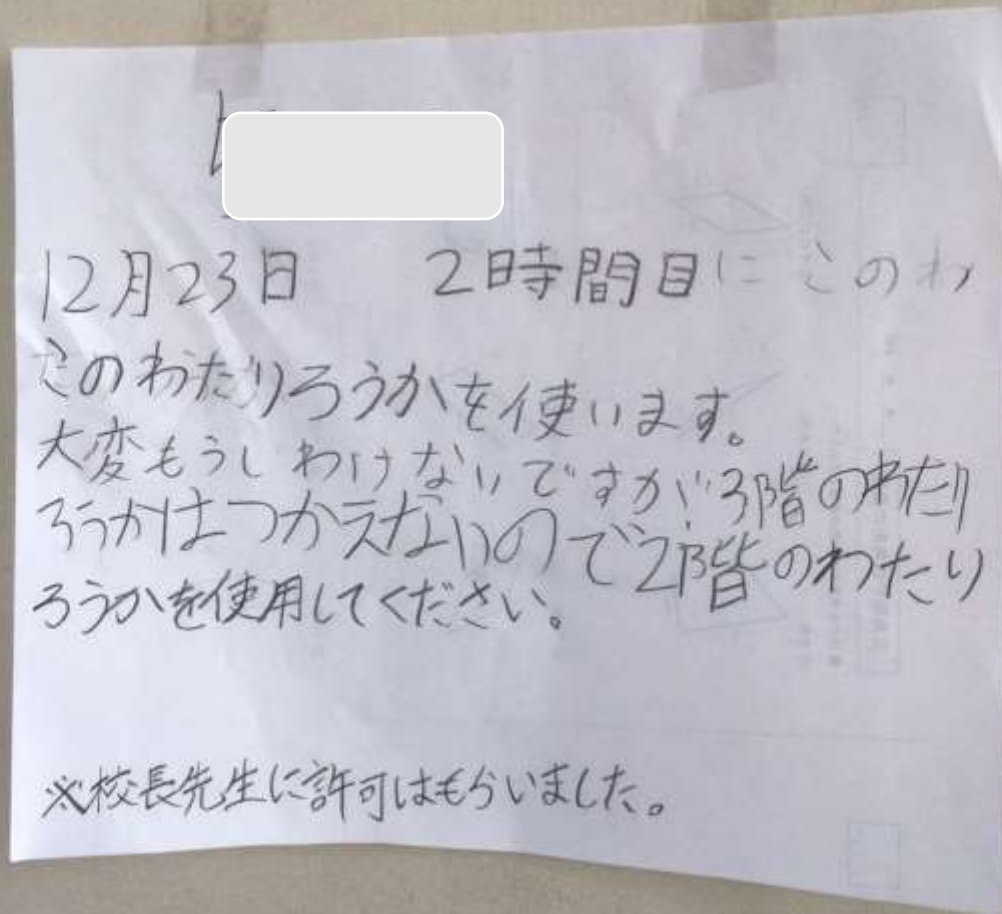 12月23日 2時間目に このわ
このわたりろうかを使います。
大変もうしわけないですが3階のわたり
ろうかはつかえないので2階のわたり
ろうかを使用してください。
※校長先生に許可はもらいました。